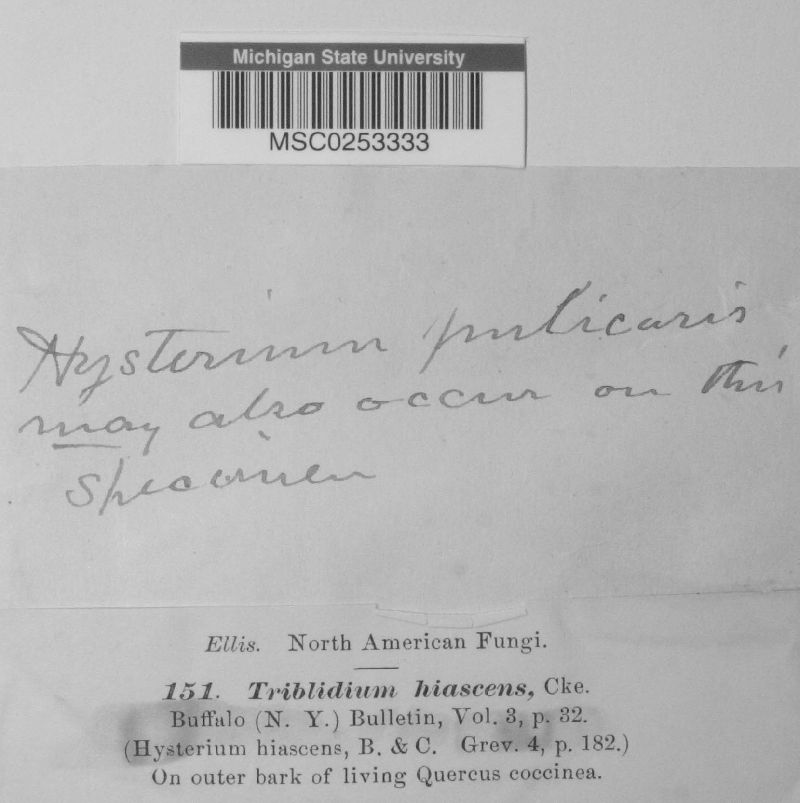 Michigan State University
MSC0253333
Hysterium pulicaris
may also occur on this
specimen
Ellis. North American Fungi.
151. Triblidium hiascens, Cke.
Buffalo (N. Y.) Bulletin, Vol. 3, p. 32.
(Hysterium hiascens, B. & C. Grev. 4, p. 182.)
On outer bark of living Quercus coccinea.